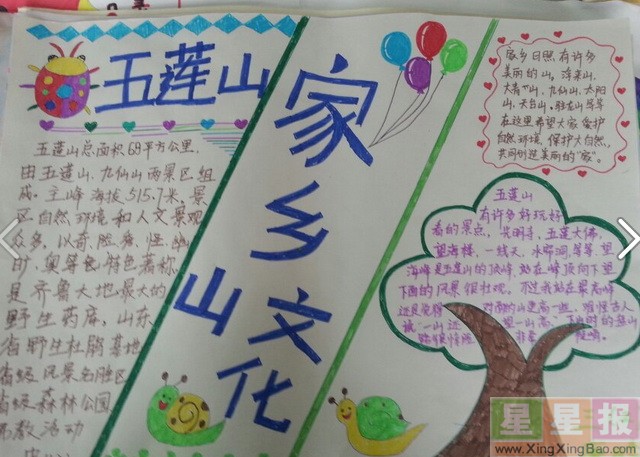 五莲山
五莲山总面积68平方公里.
由五莲山.九仙山两景区组
成.主峰海拔515.7米,景
区自然环境和人文景观
众多,以奇、险、秀、怪、幽、
奥等色特色著称
是齐鲁大地最大的
野生药库,山东
省野生杜鹃基地
省级风景名胜区
省级森林公园
教活动
家乡
山文化
家乡日照,有许多
美丽的山,浮来山.
大青山,九仙山,太阳
山,天台山,
在这里希望大家爱护
自然环境,保护大自然,
共同创造美丽的"家".
五莲山
有许多好玩好
看的景点,光明寺,五莲大佛,
望海楼,一线天,水帘洞,等等.望
海峰是五莲山的顶峰,站在峰顶向下望
下面的风景很壮观.不过我站在最高峰
还是觉得对面的山更高一些,难怪古人
说"一山还望一山高
星星报
www.XingXingBao.com